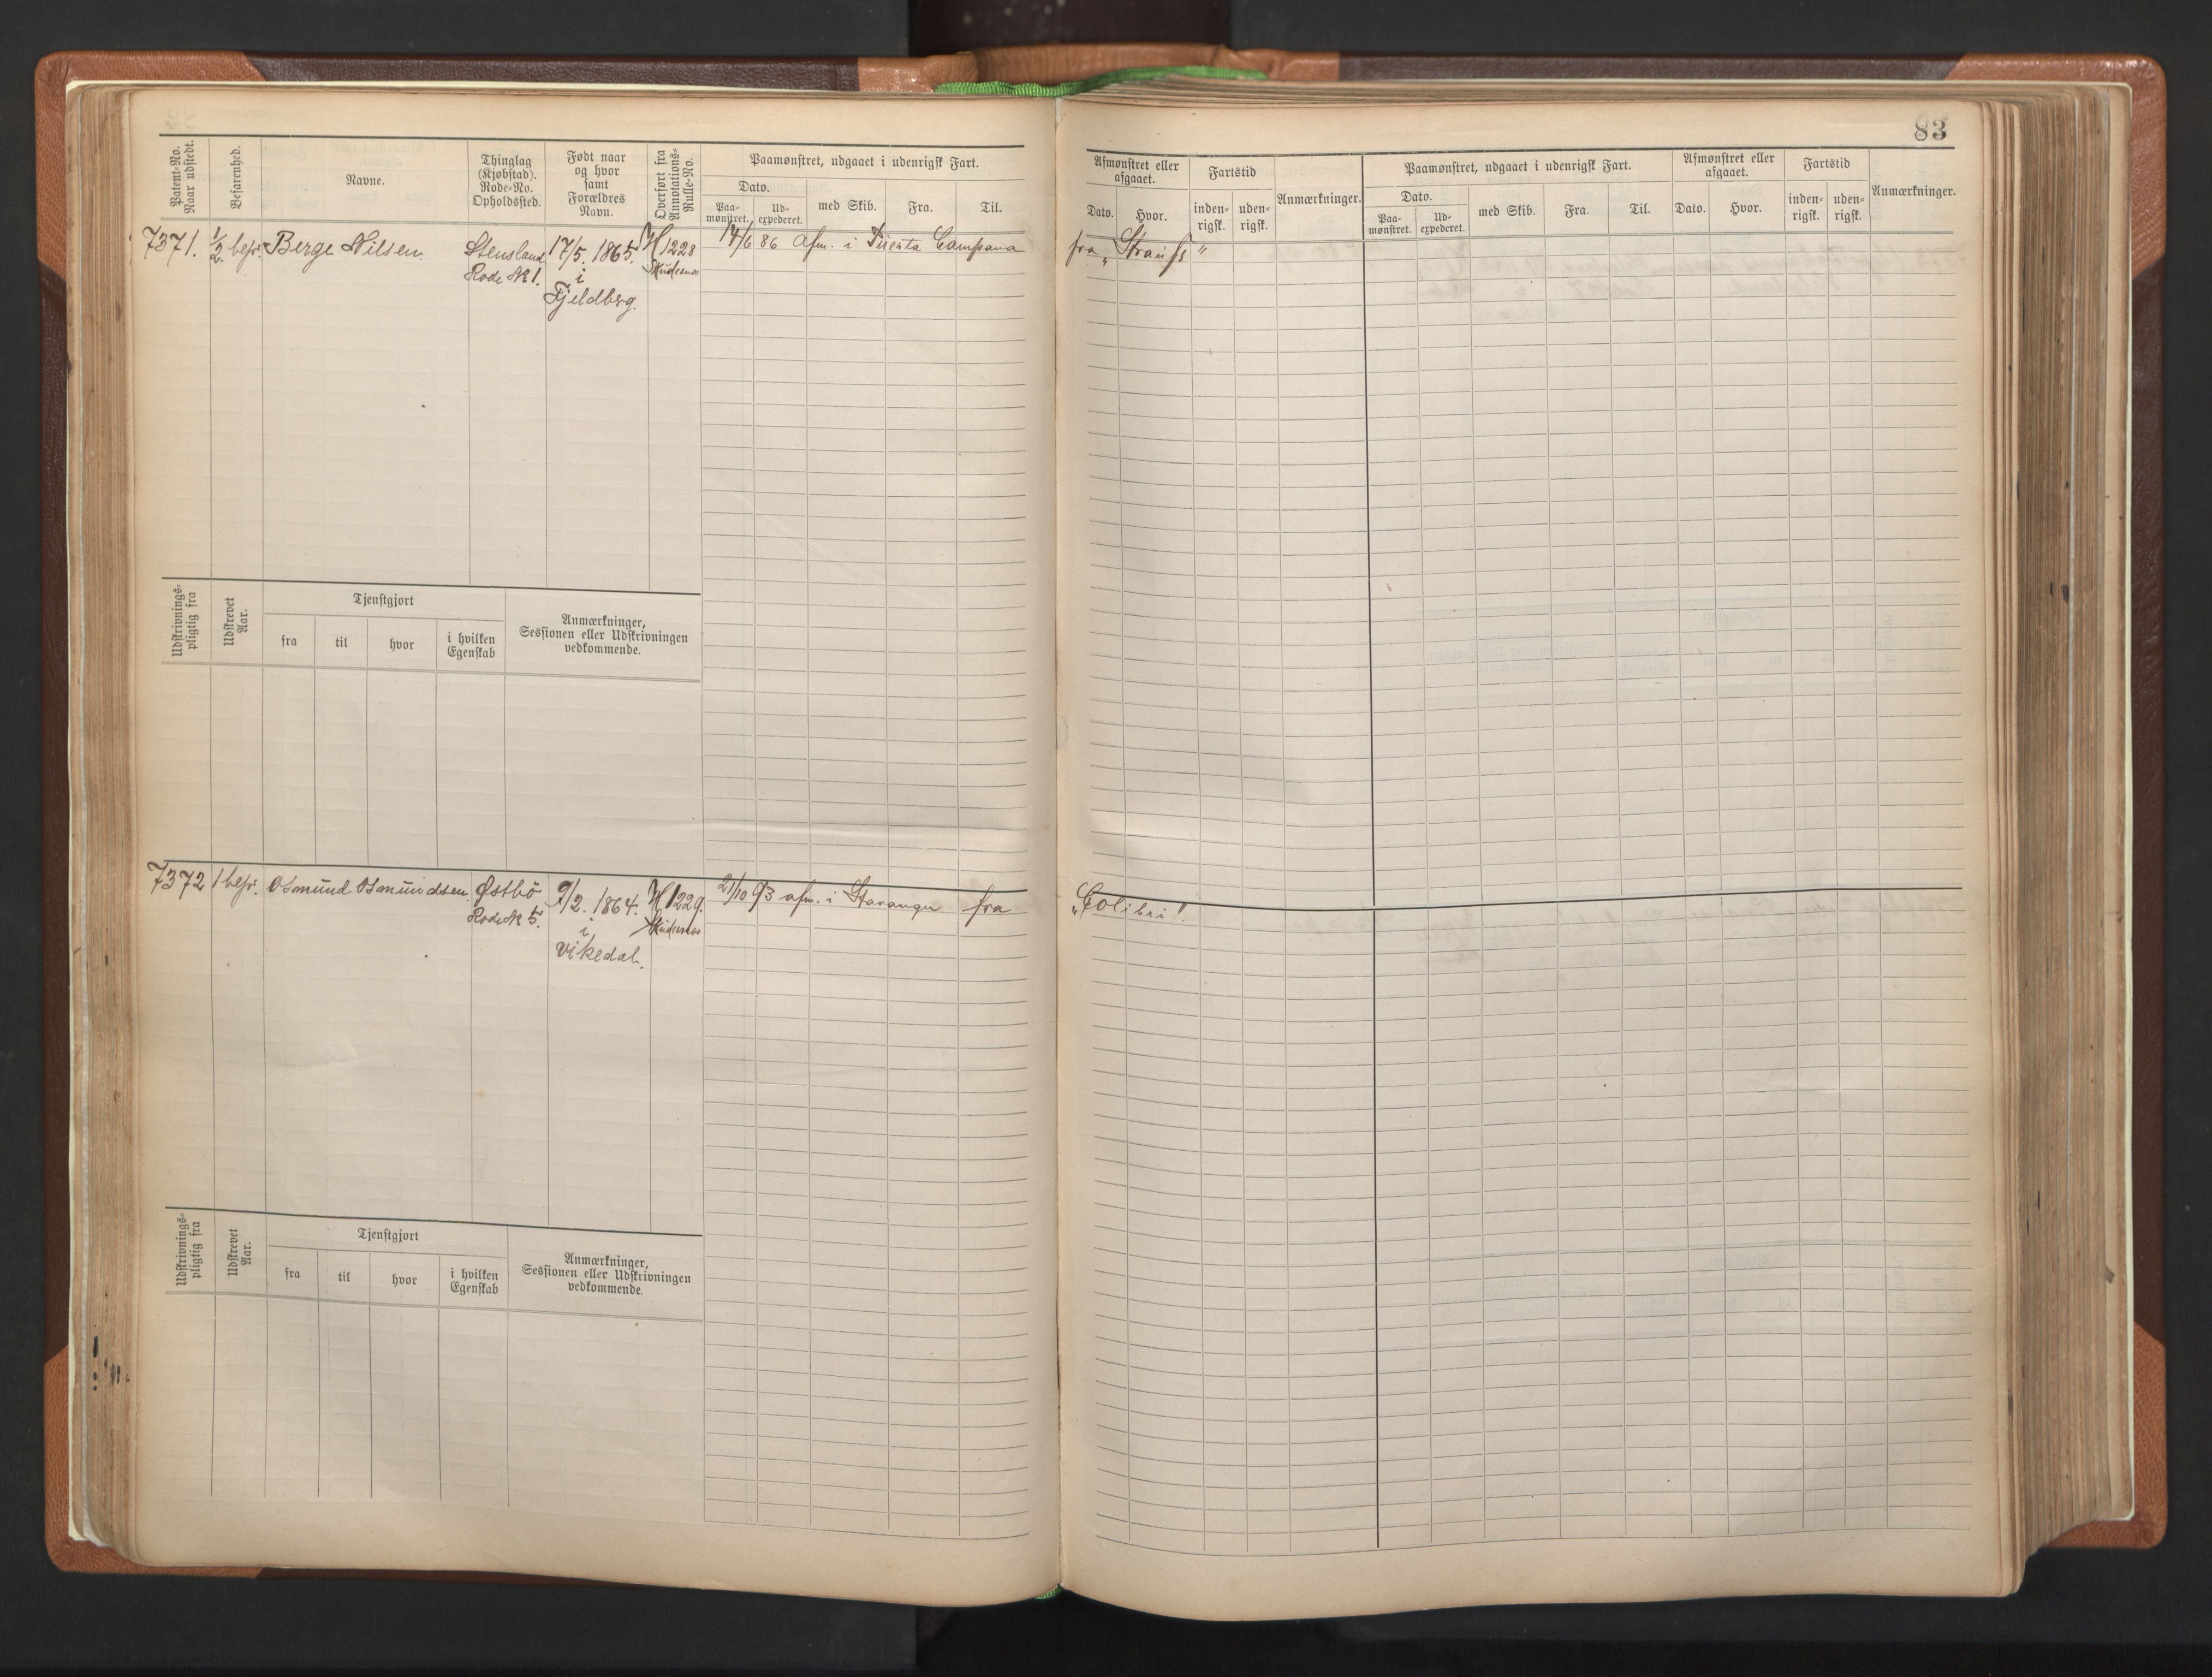 83
Patent-No. Naar udstedt.
Befarenhed.
Navne.
Thinglag (Kjøbstad). Rode-No. Opholdssted.
Født naar og hvor samt Forældres Navn.
Overført fra Annotations-Rulle-No.
Paamønstret, udgaaet i udenrigsk Fart.
Dato.
Paamønstret.
Udexpederet.
med Skib.
Fra.
Til.
Afmønstret eller afgaaet.
Dato.
Hvor.
Fartstid
indenrigsk.
udenrigsk.
Anmærkninger.
Paamønstret, udgaaet i udenrigsk Fart.
Dato.
Paamønstret.
Udexpederet.
med Skib.
Fra.
Til.
Afmønstret eller afgaaet.
Dato.
Hvor.
Fartstid
indenrigsk.
udenrigsk.
Anmærkninger.
7371. 1/2 bef. Berge Nilsen Stensland 17/5. 1865. H 1228 14/6 86 afm. i Campana fra „Strauss"
Rode № 1. i
Fjeldberg.
Udskrivningspligtig fra
Udskrevet Aar.
Tjenstgjort
fra
til
hvor
i hvilken Egenskab
Anmærkninger, Sessionen eller Udskrivningen vedkommende.
7372 1 bef. Osmund Osmundsen Østbö 9/2. 1864. H 1229. 21/10 93 afm. i Stavanger fra „Colibri".
Rode № 5. i
Vikedal.
Udskrivningspligtig fra
Udskrevet Aar.
Tjenstgjort
fra
til
hvor
i hvilken Egenskab
Anmærkninger, Sessionen eller Udskrivningen vedkommende.